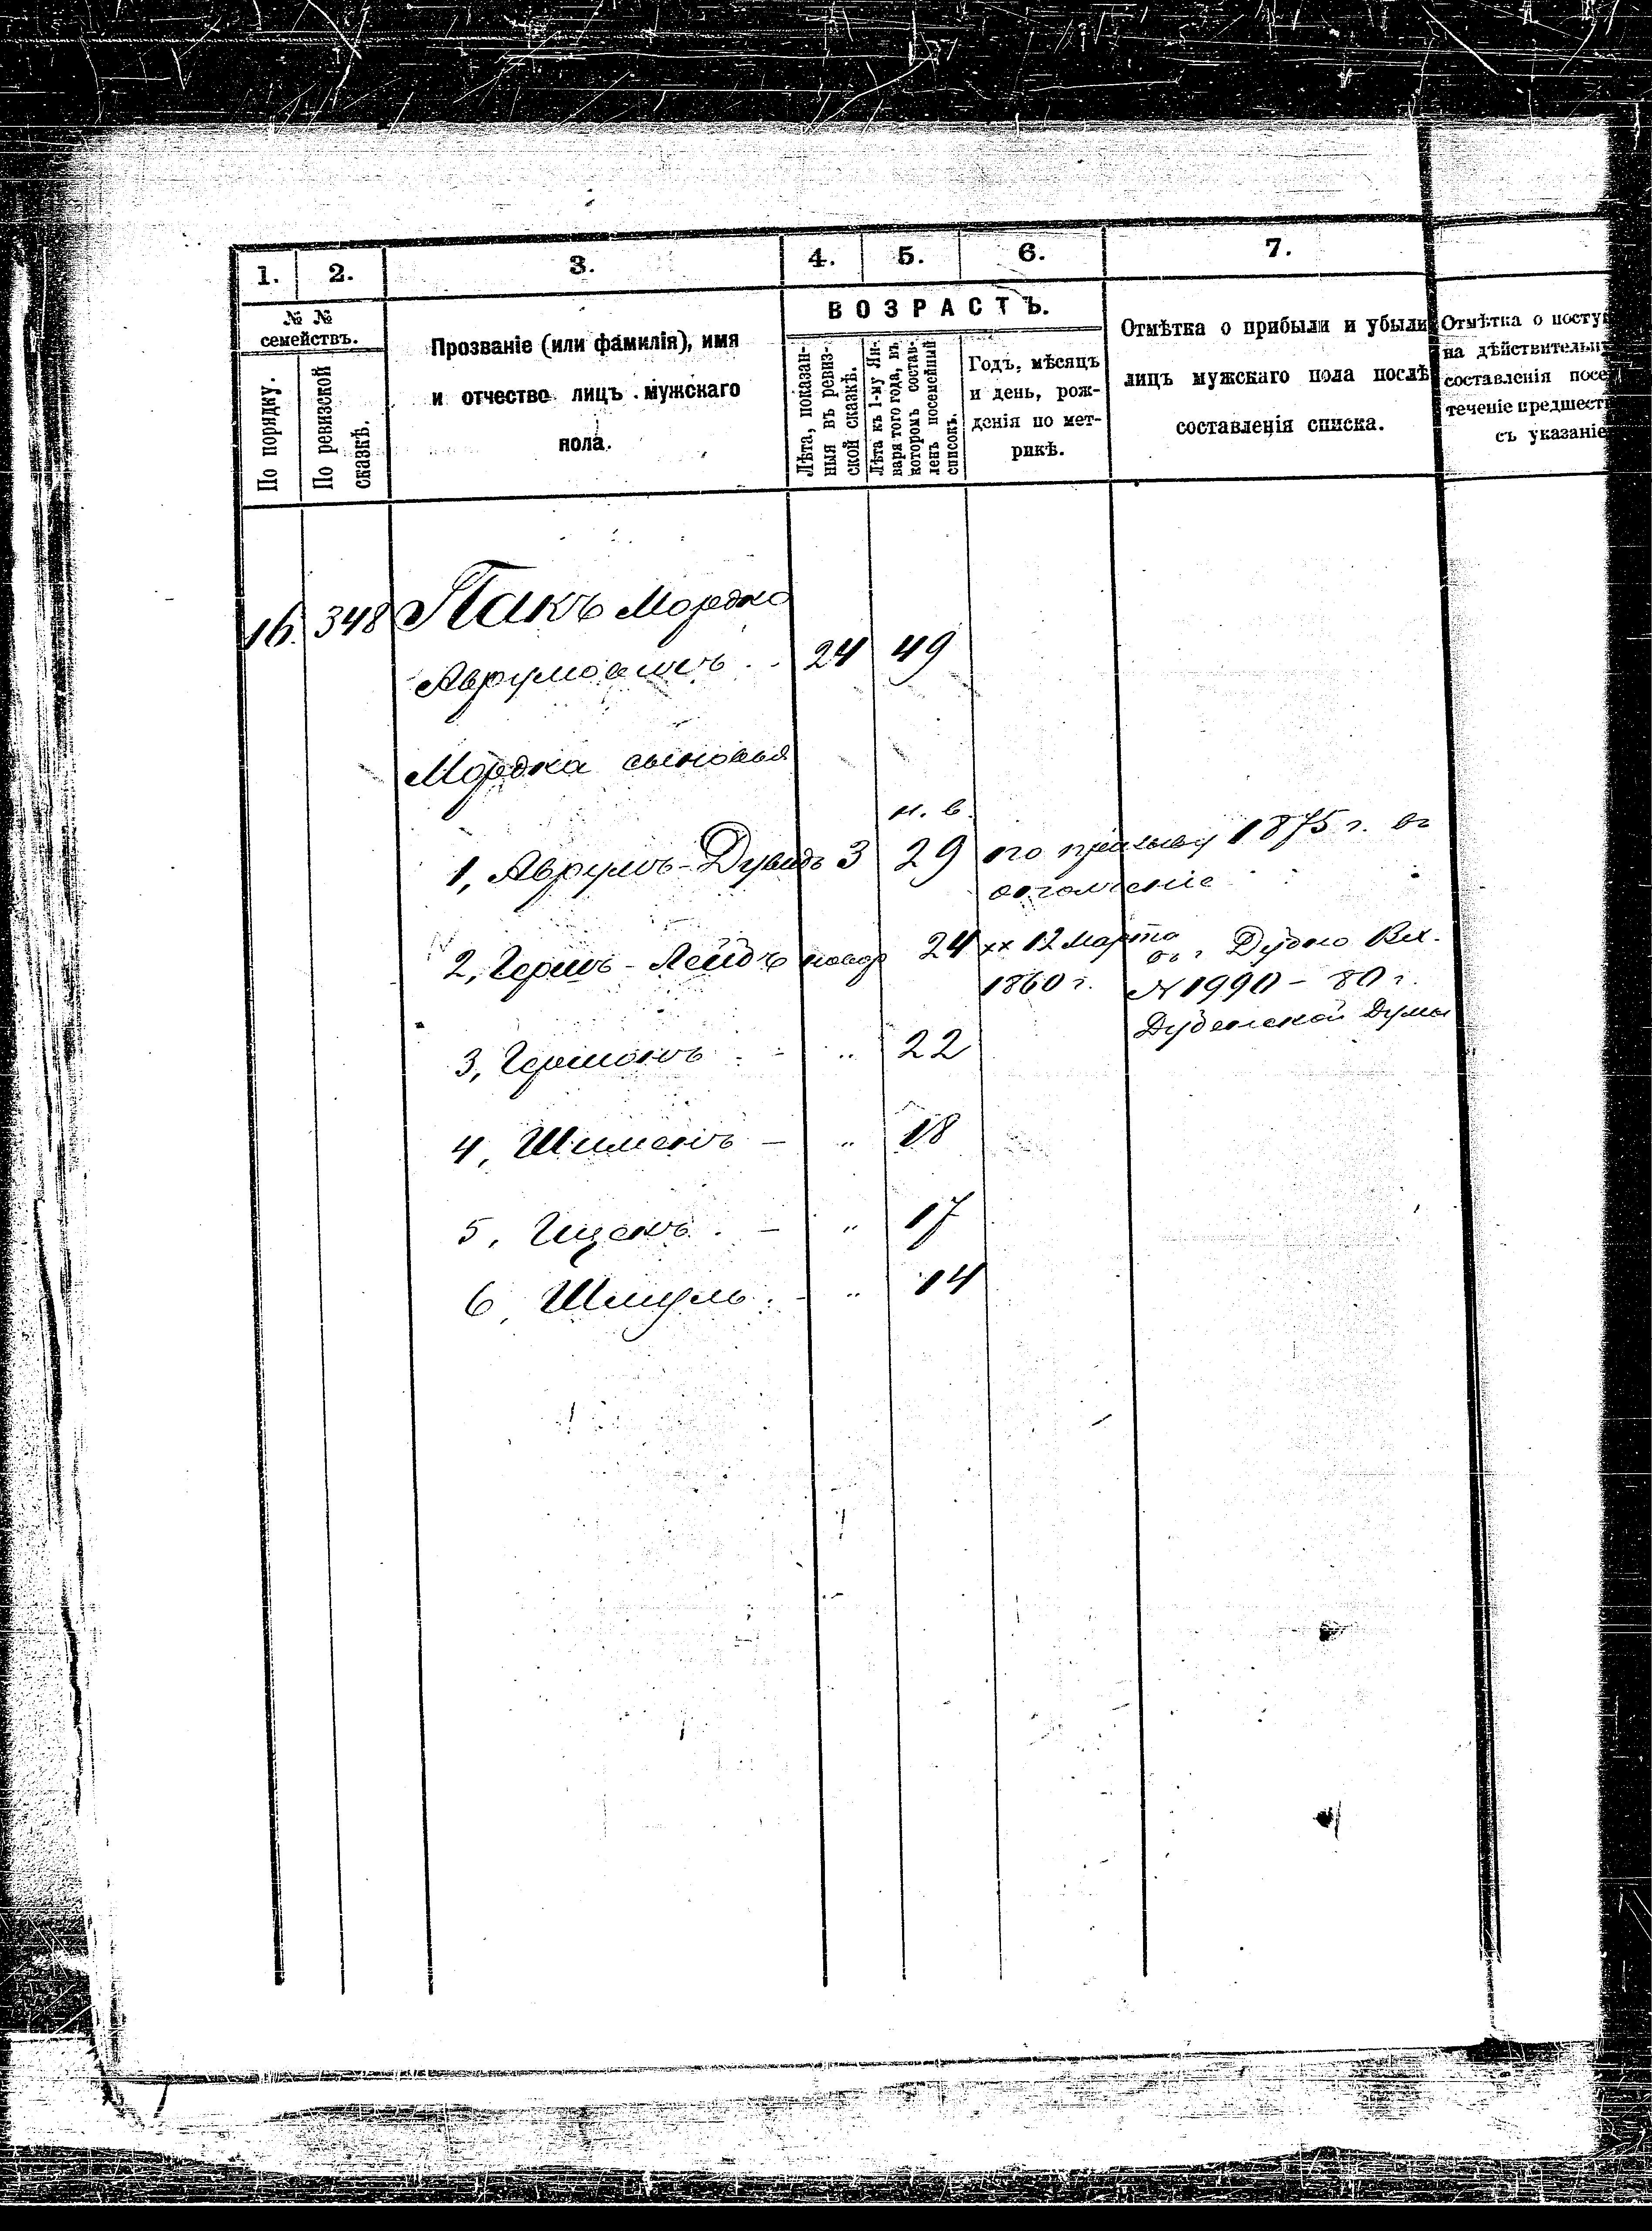 1.
2.
3.
4.
5.
6.
7.
№ №
семействъ.
По порядку.
По ревизской
сказкѣ.
Прозваніе (или фамилія), имя
и отчество лицъ мужскаго
пола.
ВОЗРАСТЪ.
Лѣта, показан-
ныя въ ревиз-
ской сказкѣ.
Лѣта къ 1-му Ян-
варя того года, въ
которомъ состав-
ленъ посемейный
списокъ.
Годъ, мѣсяцъ
и день, рож-
денія по мет-
рикѣ.
Отмѣтка о прибыли и убыли
лицъ мужскаго пола послѣ
составленія списка.
Отмѣтка о посту
на дѣйствительн
составленія посе
теченіе предшест
съ указаніе
16. 348 Пакъ Мордко
Аврумовичъ 24 49
Мордка сыновья
н. в.
1, Аврумъ-Дувидъ 3 29 по призыву 1875 г. въ
ополченіе
2, Гершъ-Лейбъ новор 24 12 Марта г. Дубно Вх.
1860 г. № 1990 - 80 г.
Дубенской Думы
3, Гершонъ " 22
4, Шименъ - " 18
5, Ицекъ - " 17
6, Шмуль - " 14